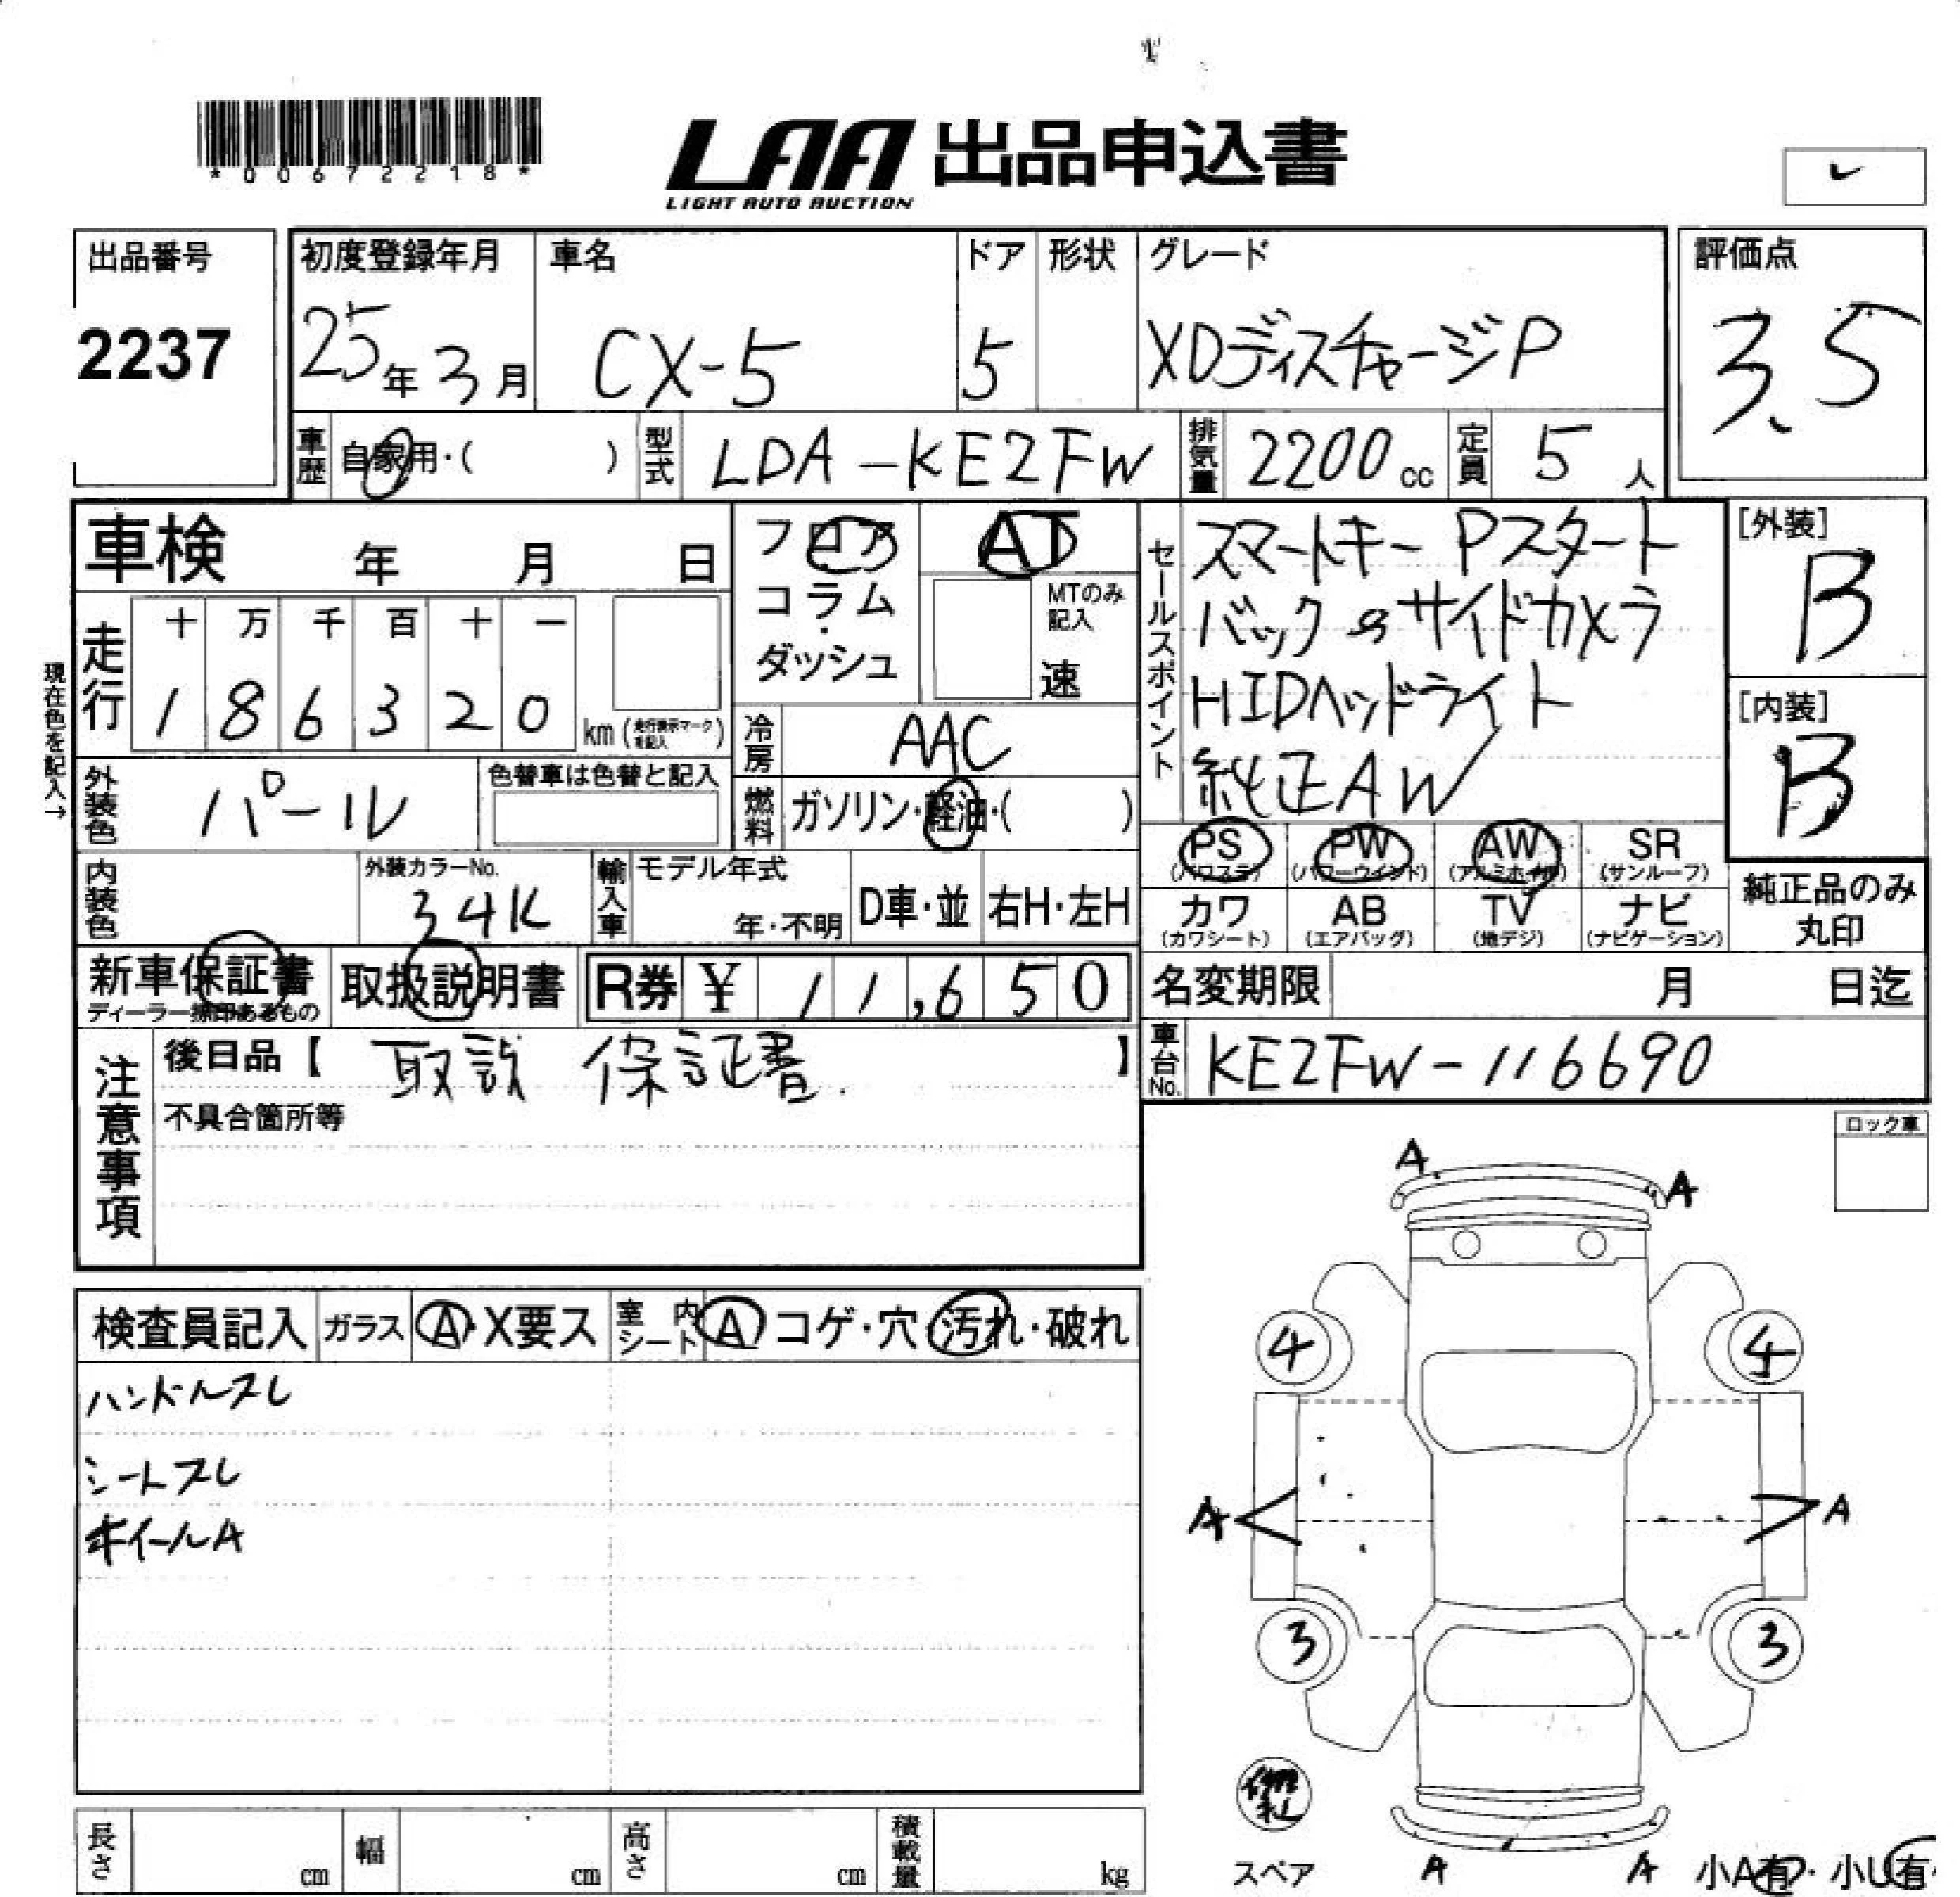 *00672218*
LAA 出品申込書
LIGHT AUTO AUCTION
出品番号
2237
初度登録年月
25年3月
車名
CX-5
ドア
5
形状
グレード
XDディスチャージP
評価点
3.5
車歴
自家用・( )
型式
LDA-KE2FW
排気量
2200cc
定員
5人
車検 年 月 日
走行
十 万 千 百 十 一
1 8 6 3 2 0
km(走行表示マークを記入)
現在色を記入→
フロア
コラム
・
ダッシュ
AT
MTのみ記入
速
冷房
AAC
燃料
ガソリン・軽油・( )
セールスポイント
スマートキー Pスタート
バック&サイドカメラ
HIDヘッドライト
純正AW
[外装]
B
[内装]
B
外装色
パール
色替車は色替と記入
内装色
外装カラーNo.
34K
輸入車
モデル年式
年・不明
D車・並
右H・左H
PS
(パワステ)
PW
(パワーウインド)
AW
(アルミホイル)
SR
(サンルーフ)
カワ
(カワシート)
AB
(エアバッグ)
TV
(地デジ)
ナビ
(ナビゲーション)
純正品のみ
丸印
新車保証書
ディーラー捺印あるもの
取扱説明書
R券 ¥ 11,650
名変期限 月 日迄
車台No.
KE2FW-116690
注意事項
後日品【 取説 保証書. 】
不具合箇所等
ロック車
検査員記入
ガラス
A・X要ス
室内シート
A コゲ・穴・汚れ・破れ
ハンドルスレ
シートスレ
ホイールA
A
A
4
4
A
A
3
3
スペア
A
A
小A有・小U有
長さ cm
幅 cm
高さ cm
積載量 kg